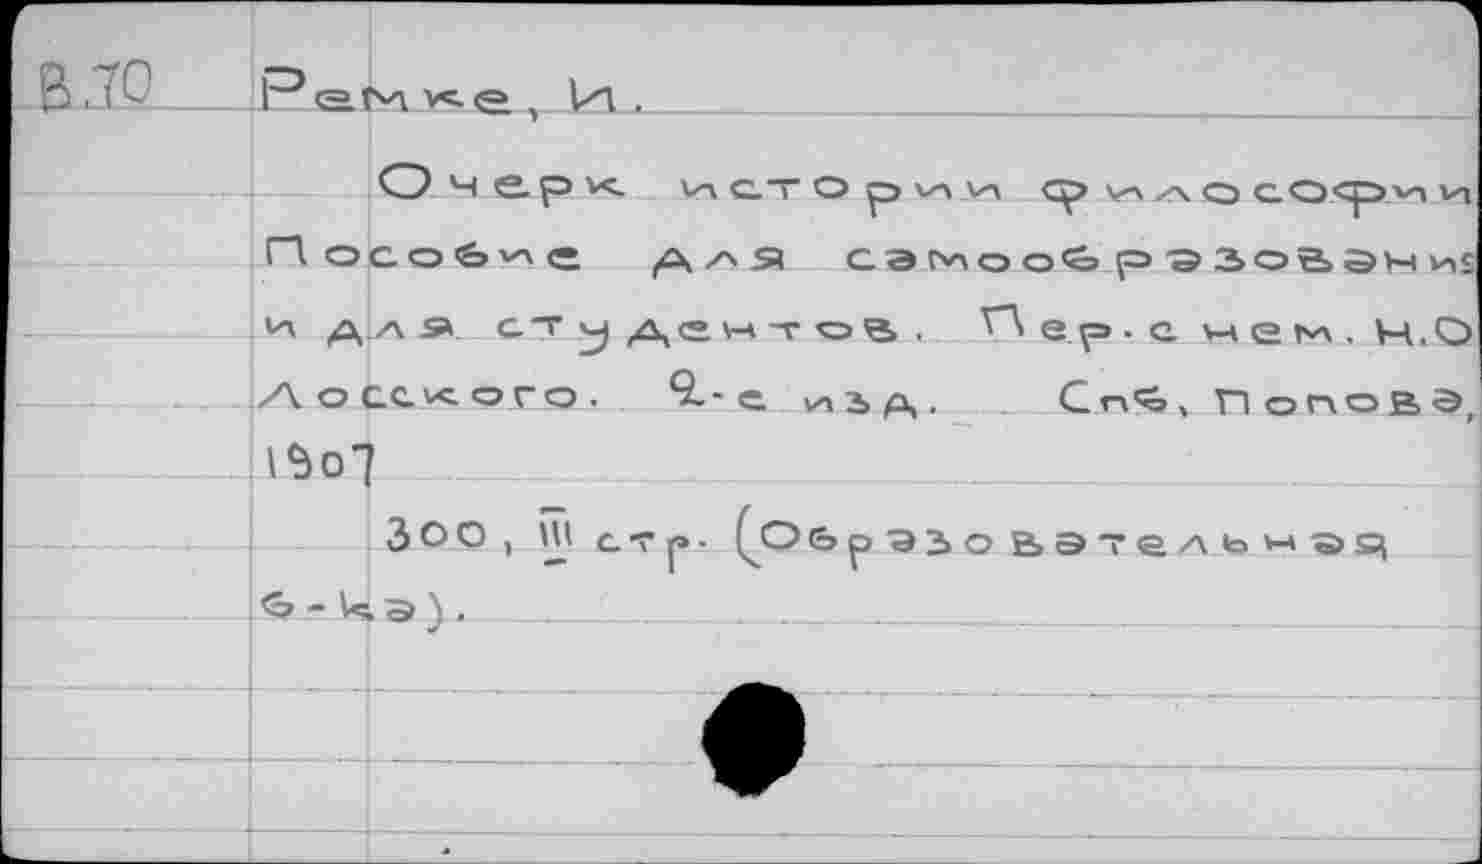 В.70 Ремке, И.
Очерк истории философии
Пособие для самообразования
и для студентов. Пер. с нем. Н.О
Лосского. 2-е изд. Спб, Попова,
1907
300, III стр. (Образовательная
б-ка).